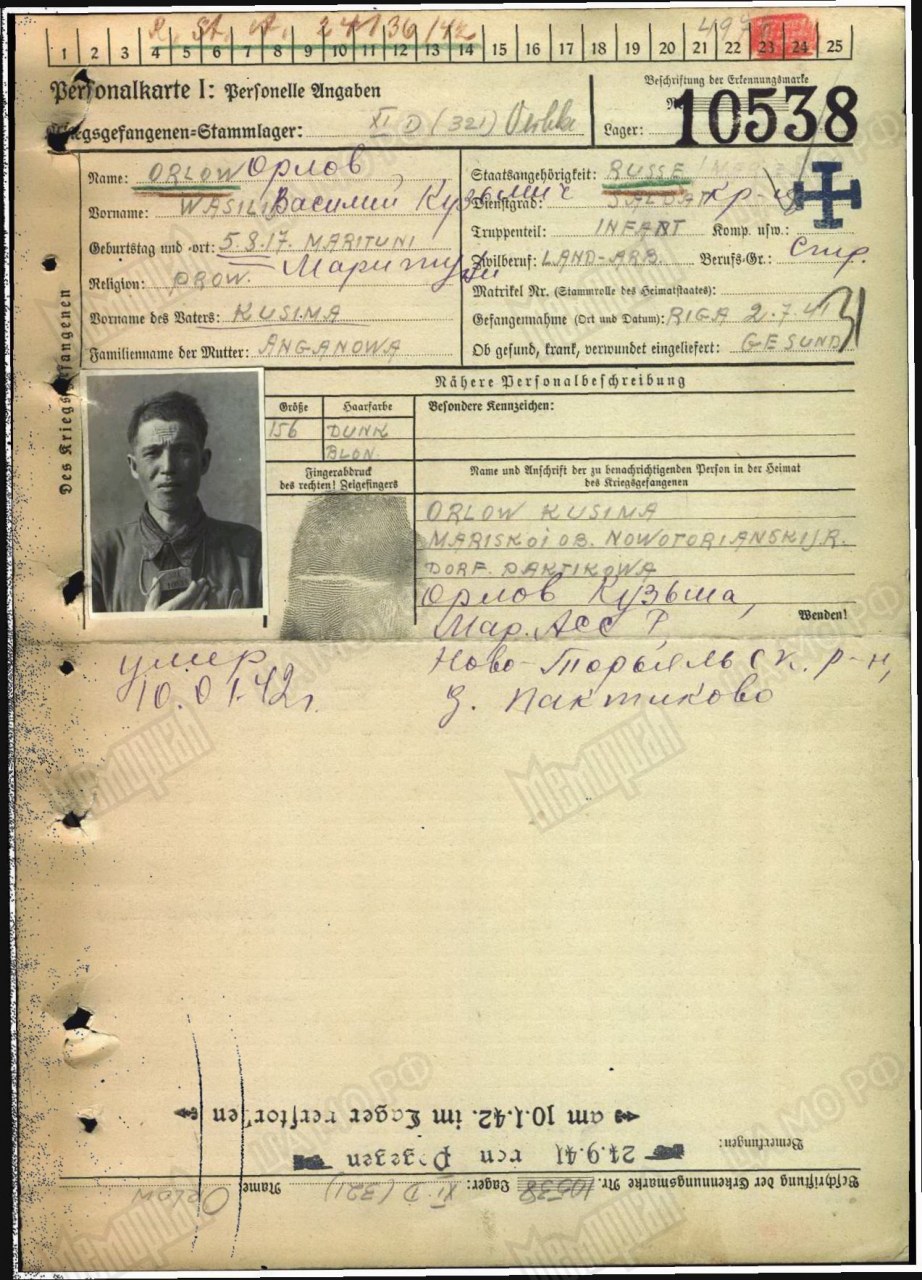 R. St. A. 24136/42
1 2 3 4 5 6 7 8 9 10 11 12 13 14 15 16 17 18 19 20 21 22 23 24 25
Personalkarte I: Personelle Angaben
Kriegsgefangenen-Stammlager: XI D (321)
Beschriftung der Erkennungsmarke
Nr. 10538
Lager:
Des Kriegsgefangenen
Name: ORLOW Орлов
Vorname: WASILI Василий Кузьмич
Geburtstag und -ort: 5.8.17. MARITUNI
Маритуни
Religion: PROW.
Vorname des Vaters: KUSIMA
Familienname der Mutter: ANGANOWA
Staatsangehörigkeit: RUSSE
Dienstgrad: SALDAT кр-ц
Truppenteil: INFANT Komp. usw.:
Zivilberuf: LAND-ARB. Berufs-Gr.:
Matrikel Nr. (Stammrolle des Heimatstaates):
Gefangennahme (Ort und Datum): RIGA 2.7.41
Ob gesund, krank, verwundet eingeliefert: GESUND
Nähere Personalbeschreibung
Größe Haarfarbe Besondere Kennzeichen:
156 DUNK
BLON.
Fingerabdruck
des rechten! Zeigefingers
Name und Anschrift der zu benachrichtigenden Person in der Heimat
des Kriegsgefangenen
ORLOW KUSIMA
MARISKOI OB. NOWOTORIANSKIJ R.
DORF. PAKTIKOWA
Орлов Кузьма,
Мар. АССР,
Wenden!
Ново-Торъяльск. р-н,
д. Пактиково
умер
10.01.42г.
am 10.1.42. im Lager verstorben
24.9.41 von Pogegen
Bemerkungen:
Beschriftung der Erkennungsmarke Nr. 10538 Lager: XI D (321) Name: Orlow
Мемориал
ЦАМО РФ